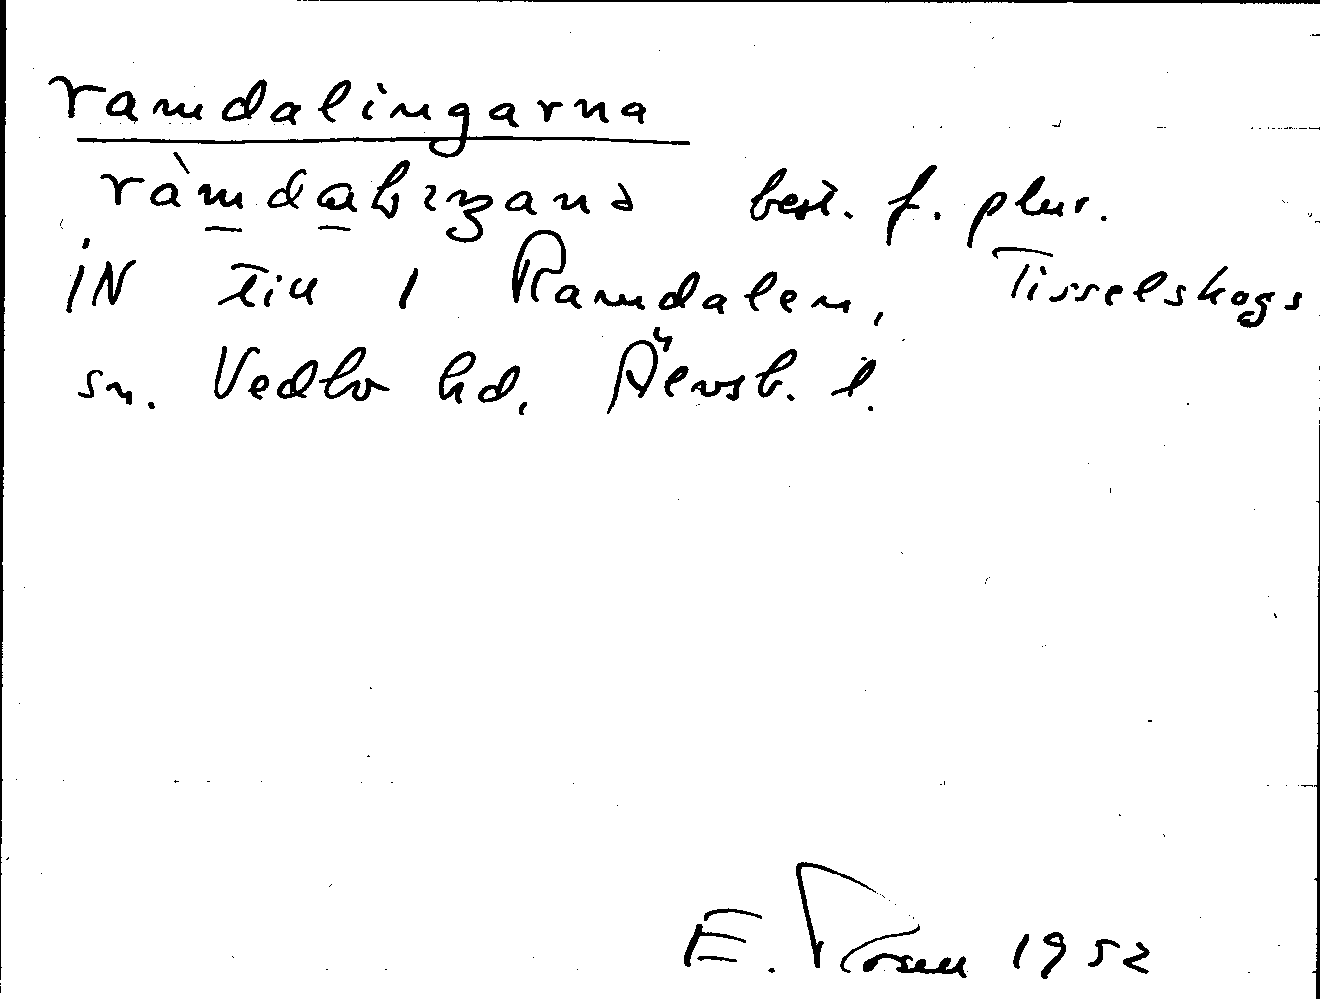 ramdalingarna
best. f. plur.
IN till 1 Ramdalen, Tisselskogs
sn. Vedbo hd, Älvsb. l.
E. Rosell 1952